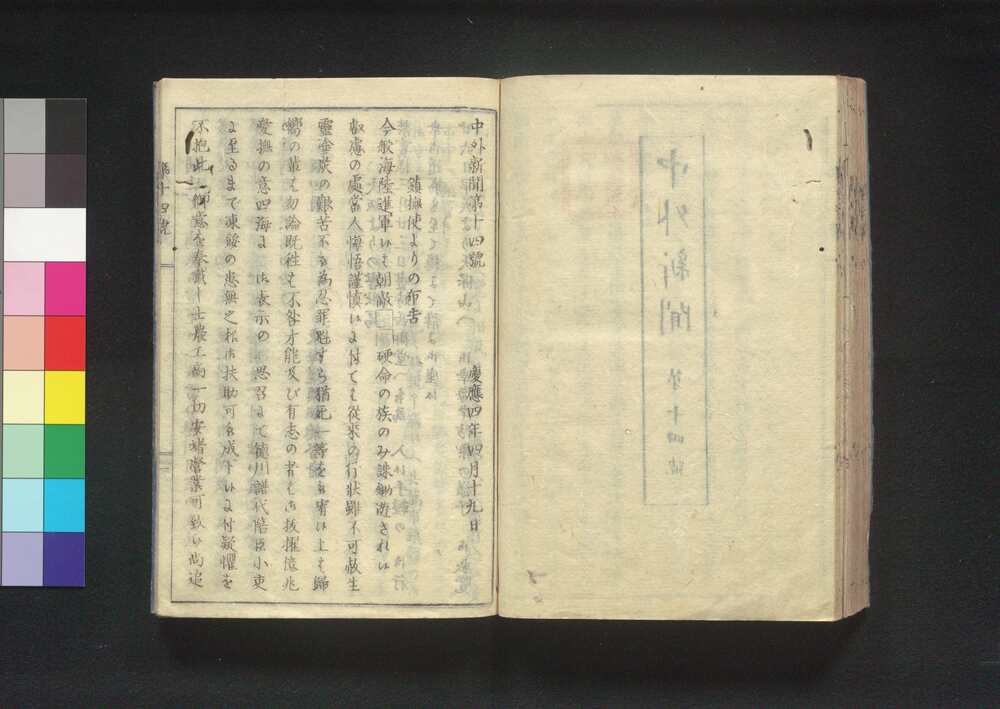 中外新聞第十四號　慶應四年四月十九日
鎮撫使よりの布告
今般海陸進軍いも朝敵　硬命の族のみ誅鋤遊されい
叡慮の處當人悔悟謹慎いよ付ても從來の行状雖不可赦生
靈塗炭の艱苦不　為忍罪魁すら猶死一等を　宥い上も歸
嚮の輩も勿論既往を不咎才能及び有志の者も御抜擢億兆
愛撫の意四海よ　御表示の　思召よて徳川譜代陪臣小吏
よ至るまで凍餒の患無之様御扶助可被成下いよ付疑懼を
不抱此　御意を奉戴し士農工商一切安堵營業可致い尚追
第十四號
中外新聞　第十四號